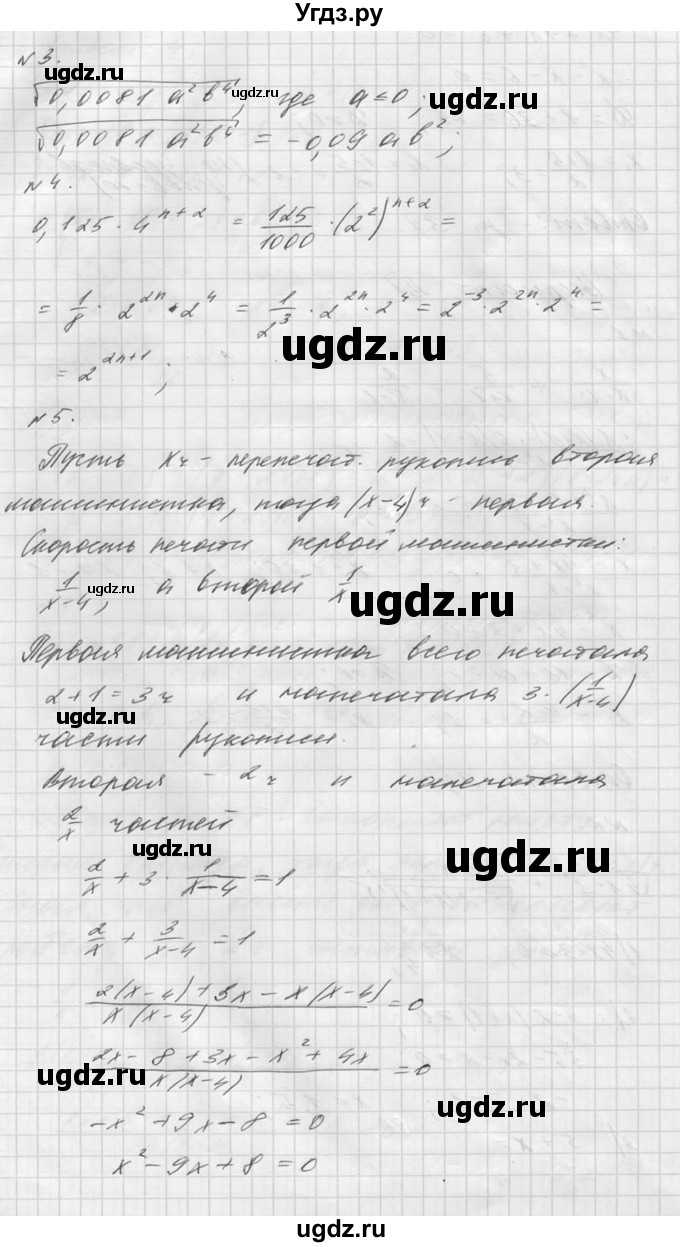 Угдз.ру
№3.
√0,0081 a²b⁴, где a ≤ 0;
ugdz.ru
ugdz.ru
√0,0081 a²b⁴ = -0,09 ab²;
№4.
0,125 · 4ⁿ⁺² = 125/1000 · (2²)ⁿ⁺² =
= 1/8 · 2²ⁿ · 2⁴ = 1/2³ · 2²ⁿ · 2⁴ = 2⁻³ · 2²ⁿ · 2⁴ =
ugdz.ru
= 2²ⁿ⁺¹;
№5.
Пусть x ч - перепечат. рукопись вторая
машинистка, тогда (x-4) ч - первая.
Скорость печати первой машинистки:
1/(x-4), а второй 1/x
ugdz.ru
ugdz.ru
Первая машинистка всего печатала
2+1 = 3 ч и напечатала 3 · (1/(x-4))
части рукописи.
Вторая - 2 ч и напечатала
2/x частей
ugdz.ru
ugdz.ru
2/x + 3 · 1/(x-4) = 1
2/x + 3/(x-4) = 1
(2(x-4) + 3x - x(x-4))/(x(x-4)) = 0
(2x - 8 + 3x - x² + 4x)/(x(x-4)) = 0
ugdz.ru
ugdz.ru
-x² + 9x - 8 = 0
x² - 9x + 8 = 0
ugdz.ru